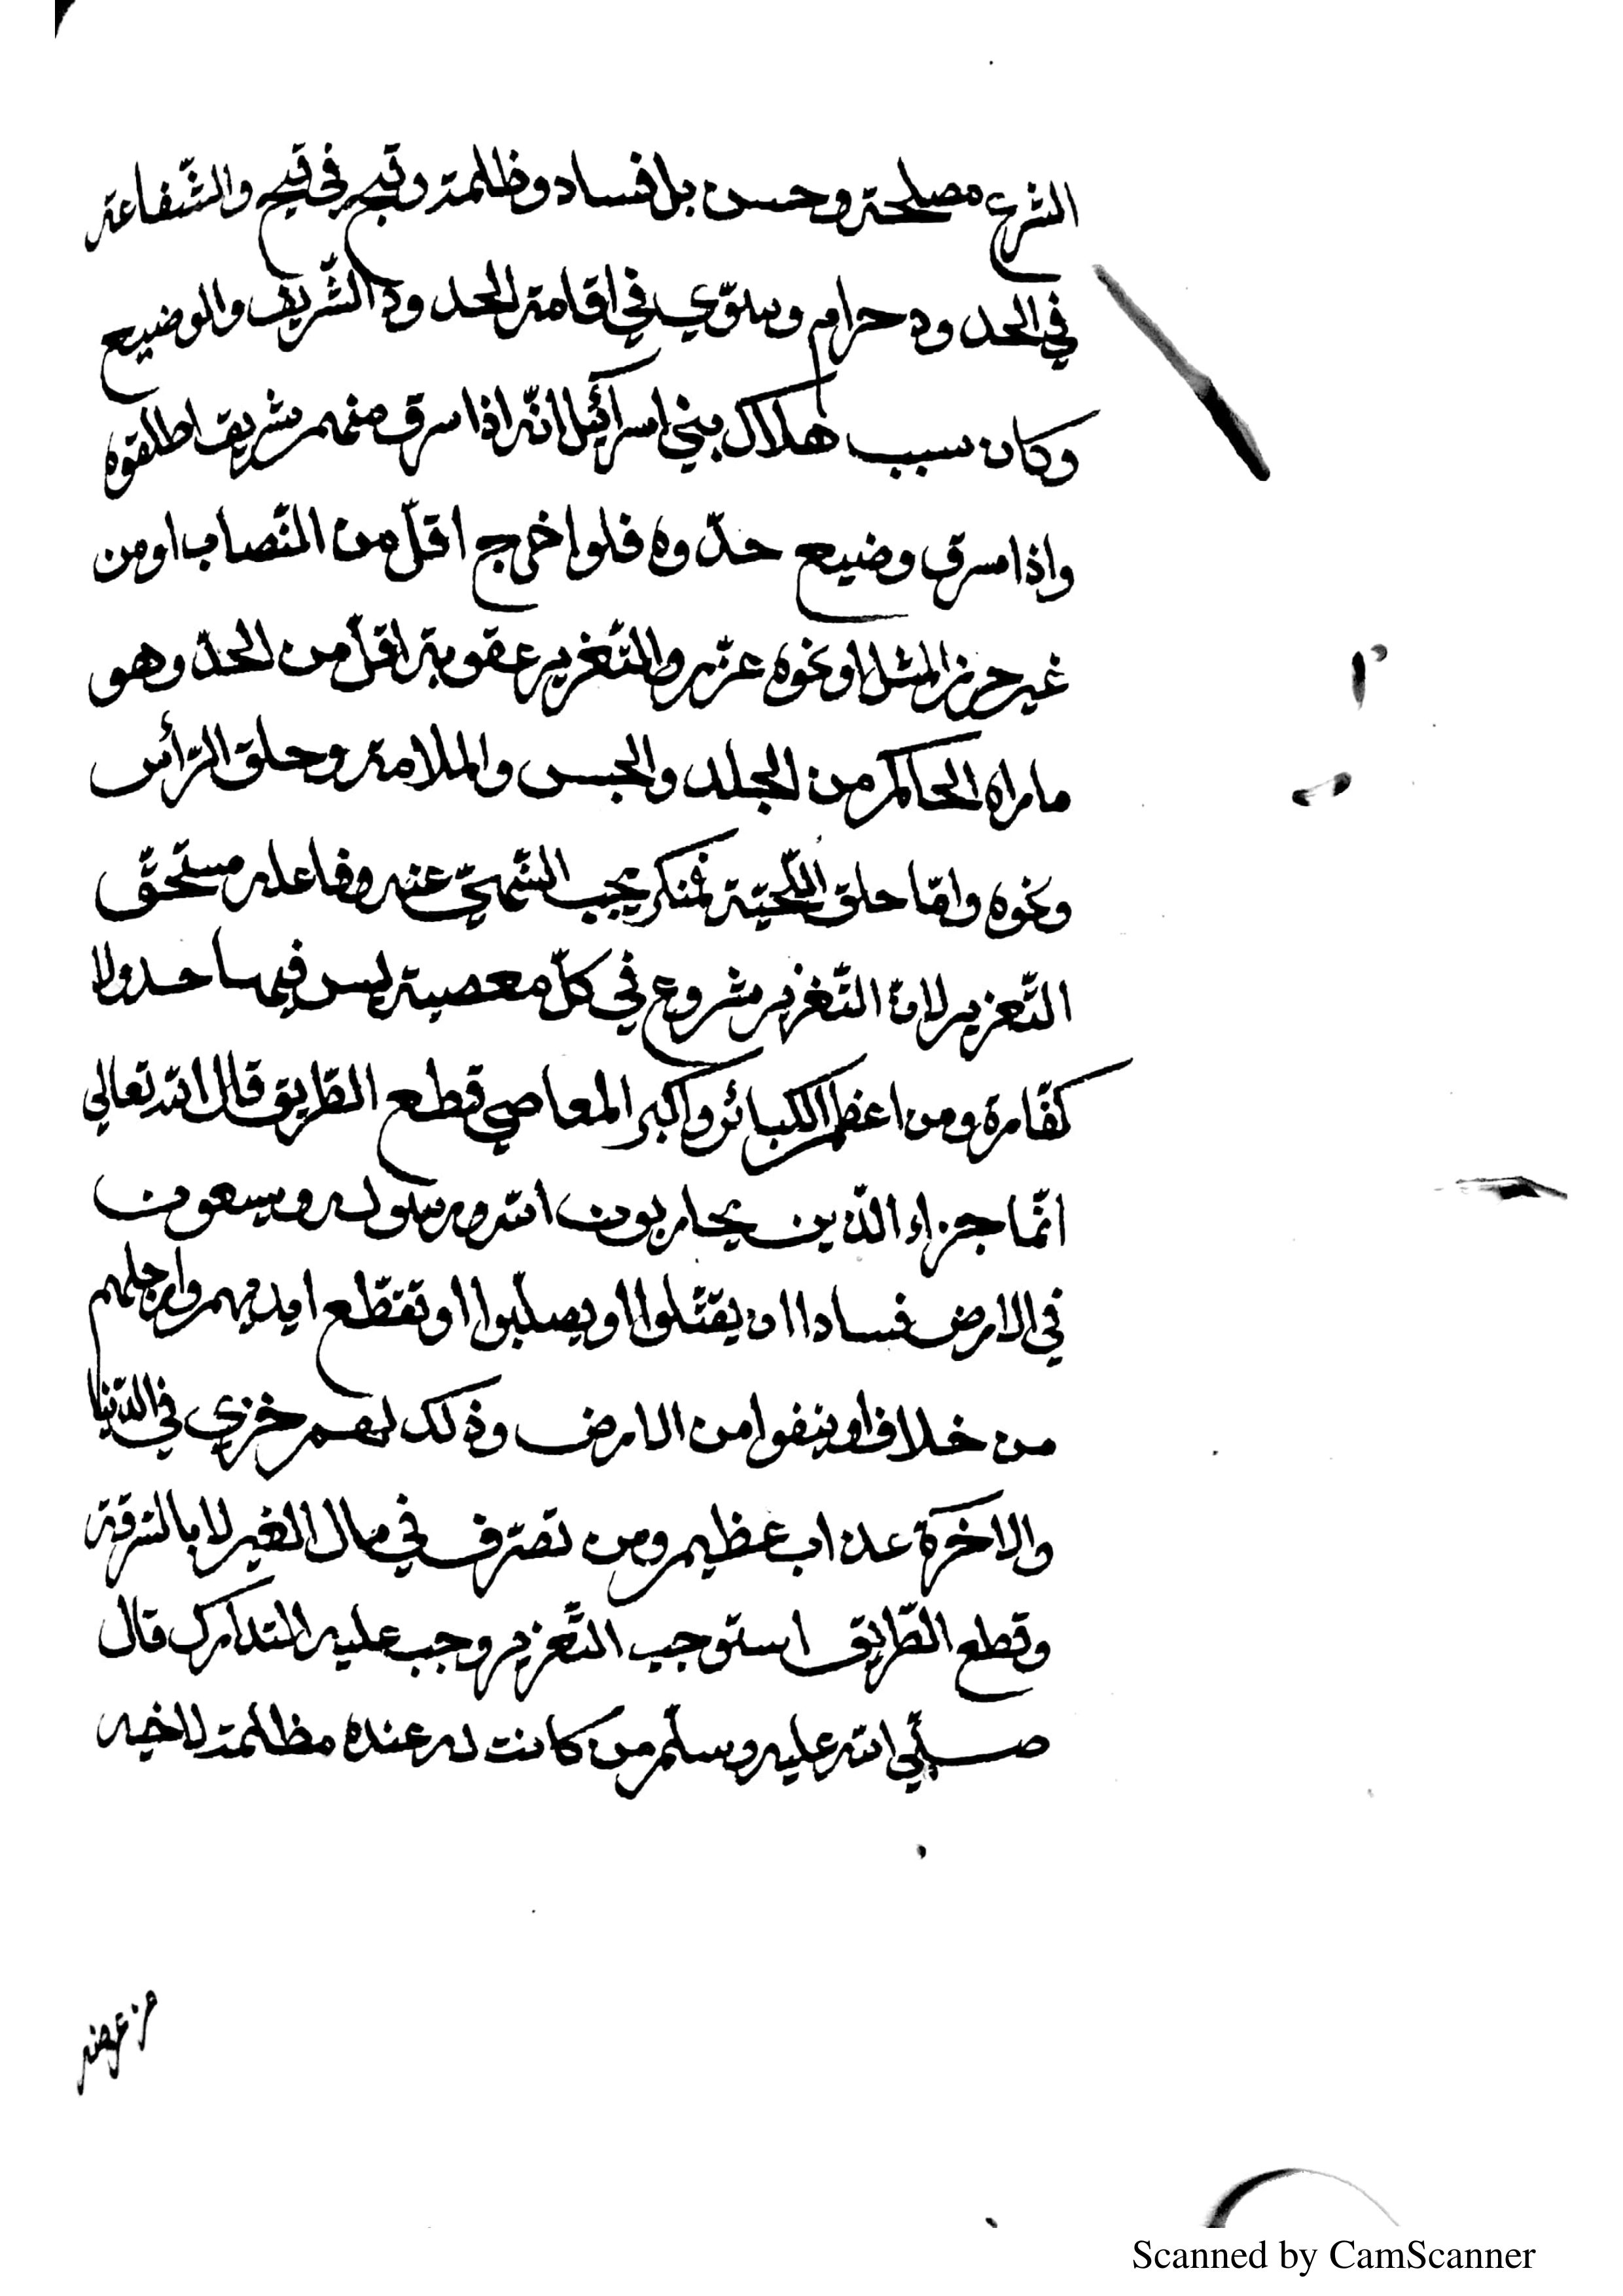 الشرع مصلحة وحسن بل فساد وظلمة وقبح في قبيح والشّفاعة
في الحدود حرام وسوّي في اقامة الحدود الشّريف والوضيع
وكان سبب هلاك بني اسرائيل انّه اذا سرق منهم شريف اطلقوه
واذا سرق وضيع حدّوه فلو اخرج اقلّ من النّصاب او من
غير حرز المثل او نحوه عزّر والتّعزير عقوبة اقلّ من الحدّ وهو
ما راه الحاكم من الجلد والحبس والملامة وحلق الرّأس
ونحوه وامّا حلق اللّحيّة فمنكر يجب النّهيّ عنه وفاعله مستحقّ
التّعزير لانّ التّعزير مشروع في كلّ معصية ليس فيها حد ولا
كفّارة ومن اعظم الكبائر واكبر المعاصي قطع الطّريق قال الله تعالي
انّما جزاء الذّين يحاربون الله ورسوله ويسعون
في الارض فسادا ان يقتّلوا او يصلّبوا او تقطّع ايديهم وارجلهم
من خلاف او ينفوا من الارض وذلك لهم خزي في الدّنيا
والاخرة عذاب عظيم ومن تصرّف في مال الغير لا بالسّرقة
وقطع الطّريق استوجب التّعزير وجب عليه المتدارك قال
صلّي الله عليه وسلّم من كانت له عنده مظلمة لاخيه
من عرضه
Scanned by CamScanner